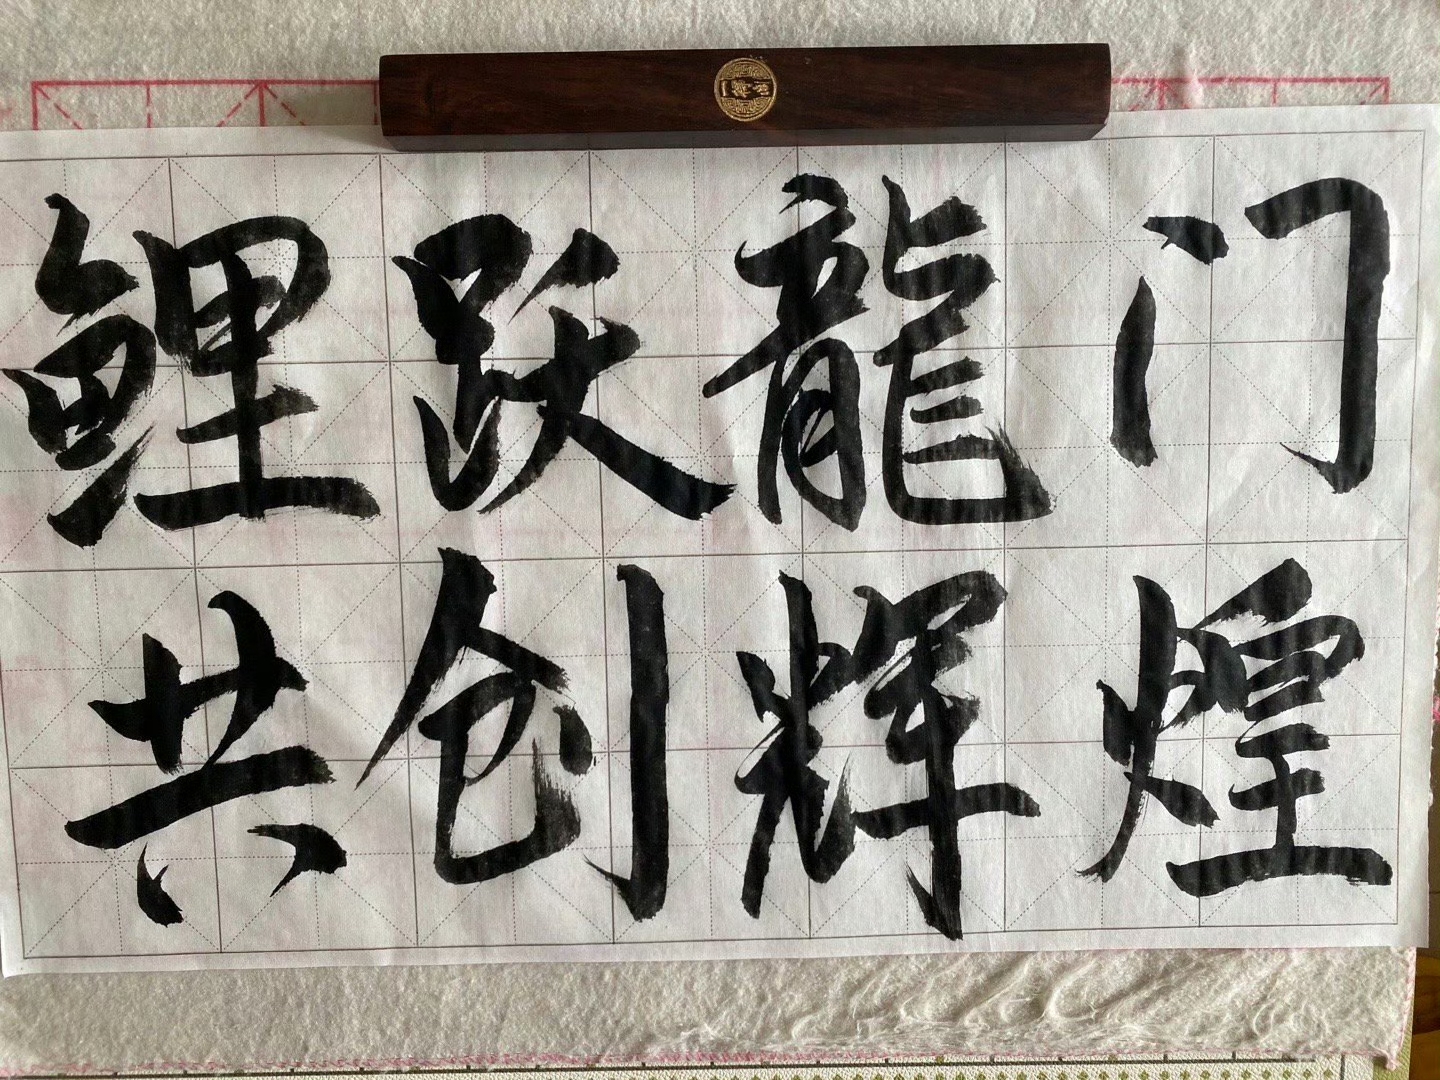 鲤跃龍门
共创辉煌